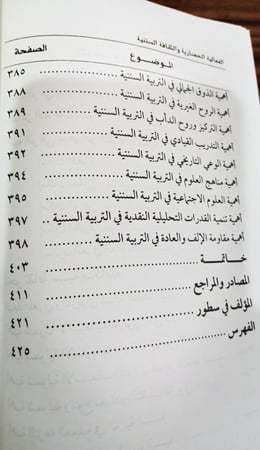 الفعالية الحضارية والثقافة السننية
الموضـــــوع الصفحة
أهمية الذوق الجمالي في التربية السننية ............ ٣٨٥
أهمية الروح الغيرية في التربية السننية ............ ٣٨٨
أهمية التركيز وروح الدأب في التربية السننية ............ ٣٨٩
أهمية التدريب القيادي في التربية السننية ............ ٣٩١
أهمية الوعي التاريخي في التربية السننية ............ ٣٩٢
أهمية مناهج العلوم في التربية السننية ............ ٣٩٤
أهمية العلوم الاجتماعية في التربية السننية ............ ٣٩٥
أهمية تنمية القدرات التحليلية النقدية في التربية السننية .. ٣٩٧
أهمية مقاومة الإلف والعادة في التربية السننية ............ ٣٩٨
خـاتمـــة ............ ٤٠٣
المصادر والمراجع ............ ٤١١
المؤلف في سطور ............ ٤٢١
الفهرس ............ ٤٢٥